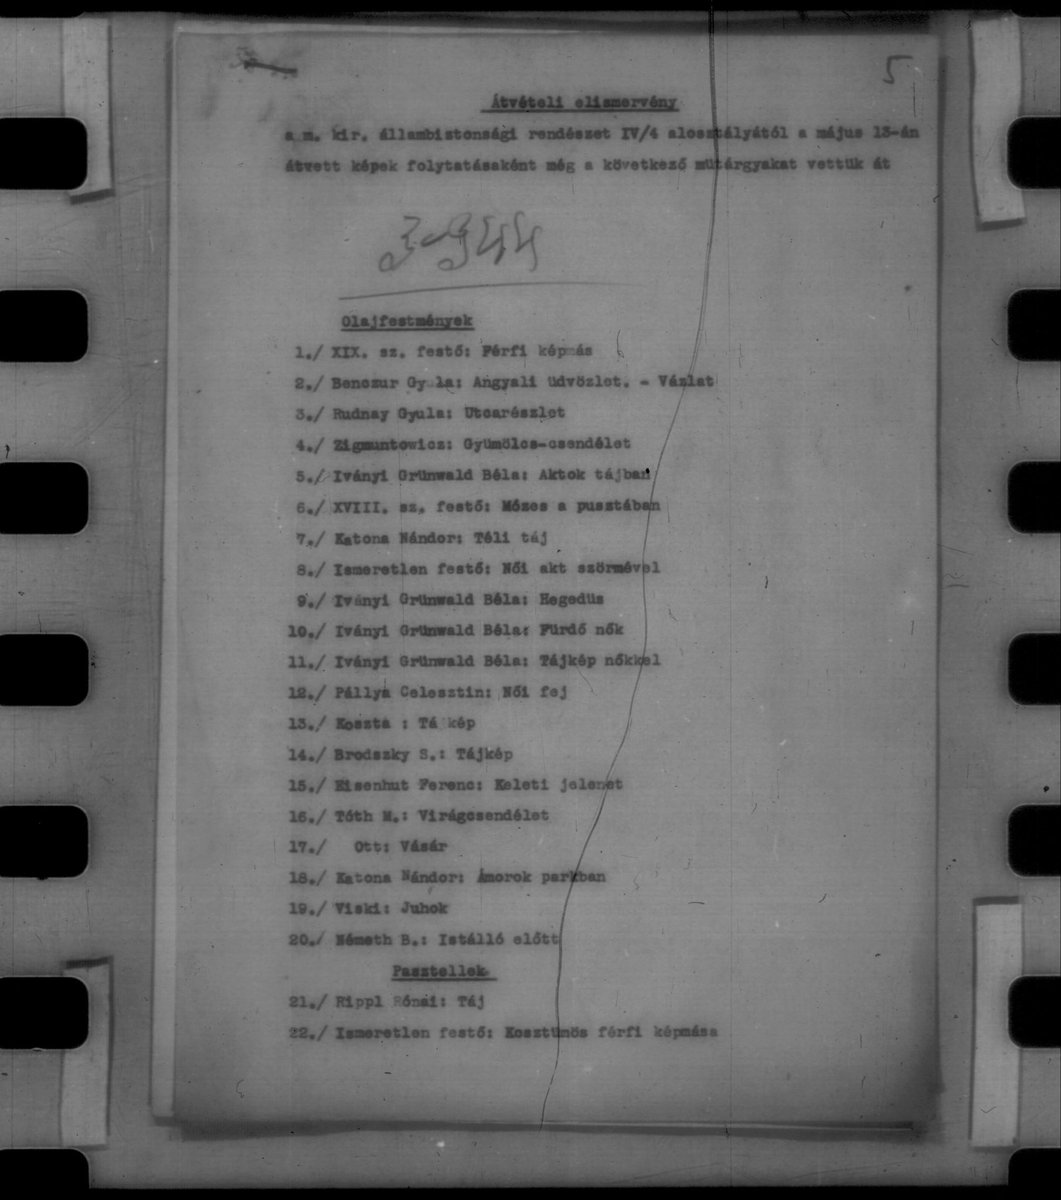 5
Átvételi elismervény
a m. kir. állambiztonsági rendészet IV/4 alosztályától a május 13-án
átvett képek folytatásaként még a következő műtárgyakat vettük át
Olajfestmények
1./ XIX. sz. festő: Férfi képmás
2./ Benczur Gyula: Angyali üdvözlet. - Vázlat
3./ Rudnay Gyula: Utcarészlet
4./ Zigmuntowicz: Gyümölcs-csendélet
5./ Iványi Grünwald Béla: Aktok tájban
6./ XVIII. sz. festő: Mózes a pusztában
7./ Katona Nándor: Téli táj
8./ Ismeretlen festő: Női akt szörmével
9./ Iványi Grünwald Béla: Hegedüs
10./ Iványi Grünwald Béla: Fürdő nők
11./ Iványi Grünwald Béla: Tájkép nőkkel
12./ Pállya Celesztin: Női fej
13./ Koszta : Tájkép
14./ Brodszky S.: Tájkép
15./ Eisenhut Ferenc: Keleti jelenet
16./ Tóth M.: Virágcsendélet
17./ Ott: Vásár
18./ Katona Nándor: Ámorok parkban
19./ Viski: Juhok
20./ Németh B.: Istálló előtt
Pasztellek
21./ Rippl Rónai: Táj
22./ Ismeretlen festő: Kosztümös férfi képmása